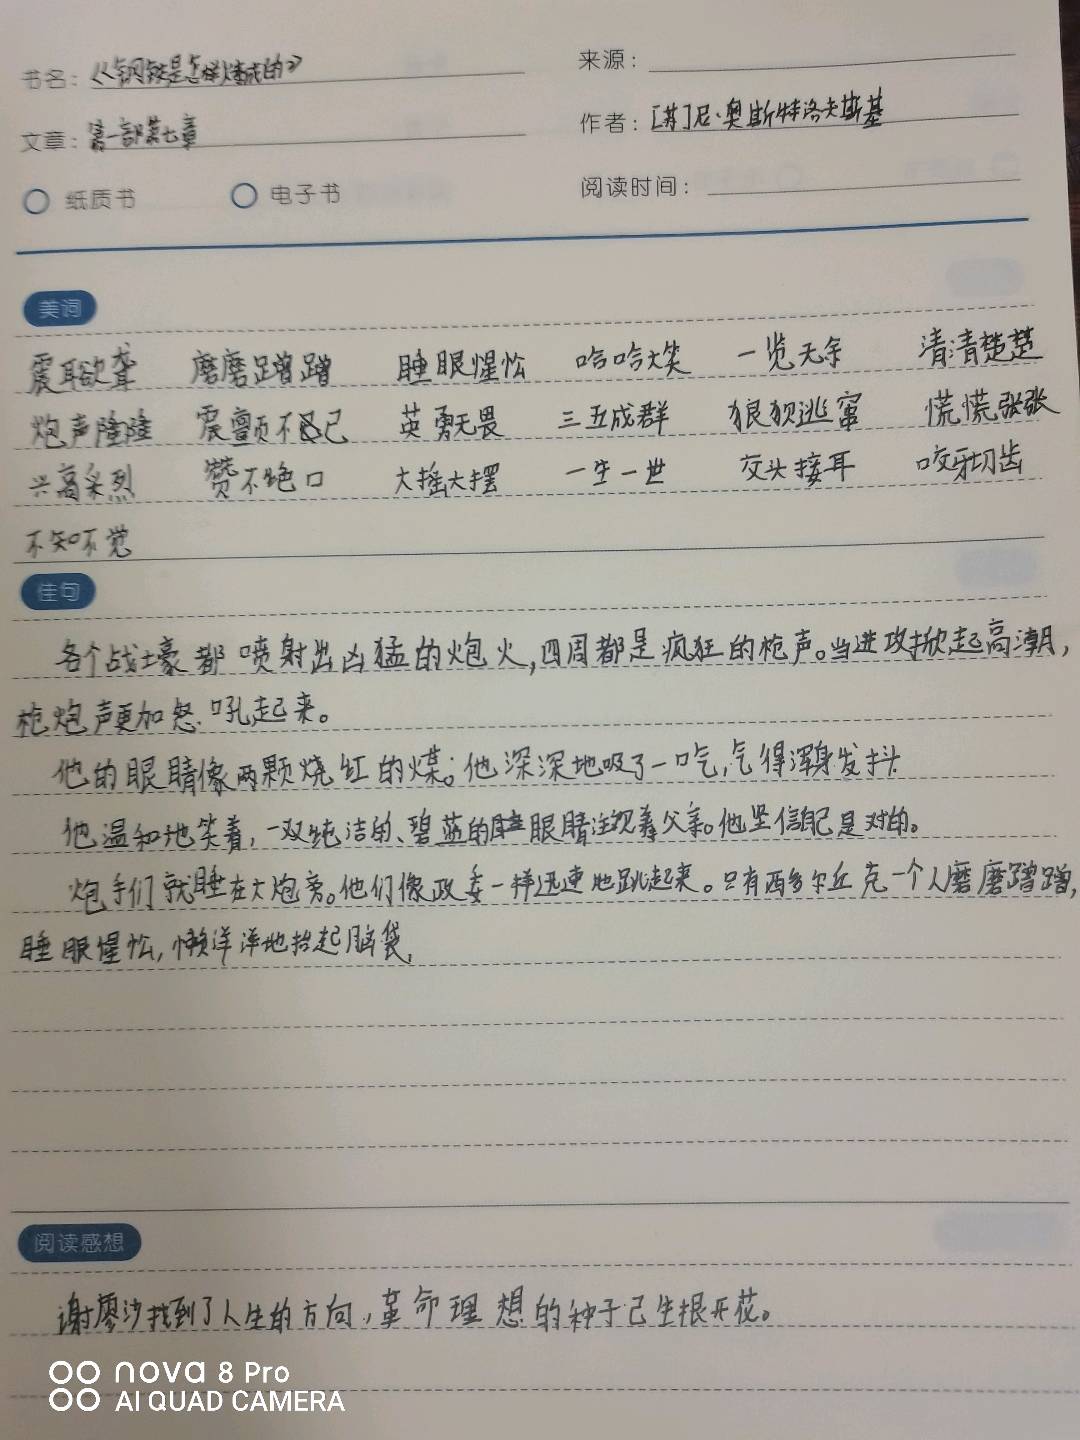 书名：《钢铁是怎样炼成的》 来源：
文章：第一部第七章 作者：[苏]尼·奥斯特洛夫斯基
纸质书 电子书 阅读时间：
美词
震耳欲聋 磨磨蹭蹭 睡眼惺忪 哈哈大笑 一览无余 清清楚楚
炮声隆隆 震颤不已 英勇无畏 三五成群 狼狈逃窜 慌慌张张
兴高采烈 赞不绝口 大摇大摆 一生一世 交头接耳 咬牙切齿
不知不觉
佳句
各个战壕都喷射出凶猛的炮火,四周都是疯狂的枪声。当进攻掀起高潮,
枪炮声更加怒吼起来。
他的眼睛像两颗烧红的煤;他深深地吸了一口气,气得浑身发抖
他温和地笑着,一双纯洁的、碧蓝的眼睛注视着父亲。他坚信自己是对的。
炮手们就睡在大炮旁。他们像政委一样迅速地跳起来。只有西多尔丘克一个人磨磨蹭蹭,
睡眼惺忪,懒洋洋地抬起脑袋,
阅读感想
谢廖沙找到了人生的方向,革命理想的种子已生根开花。
nova 8 Pro
AI QUAD CAMERA